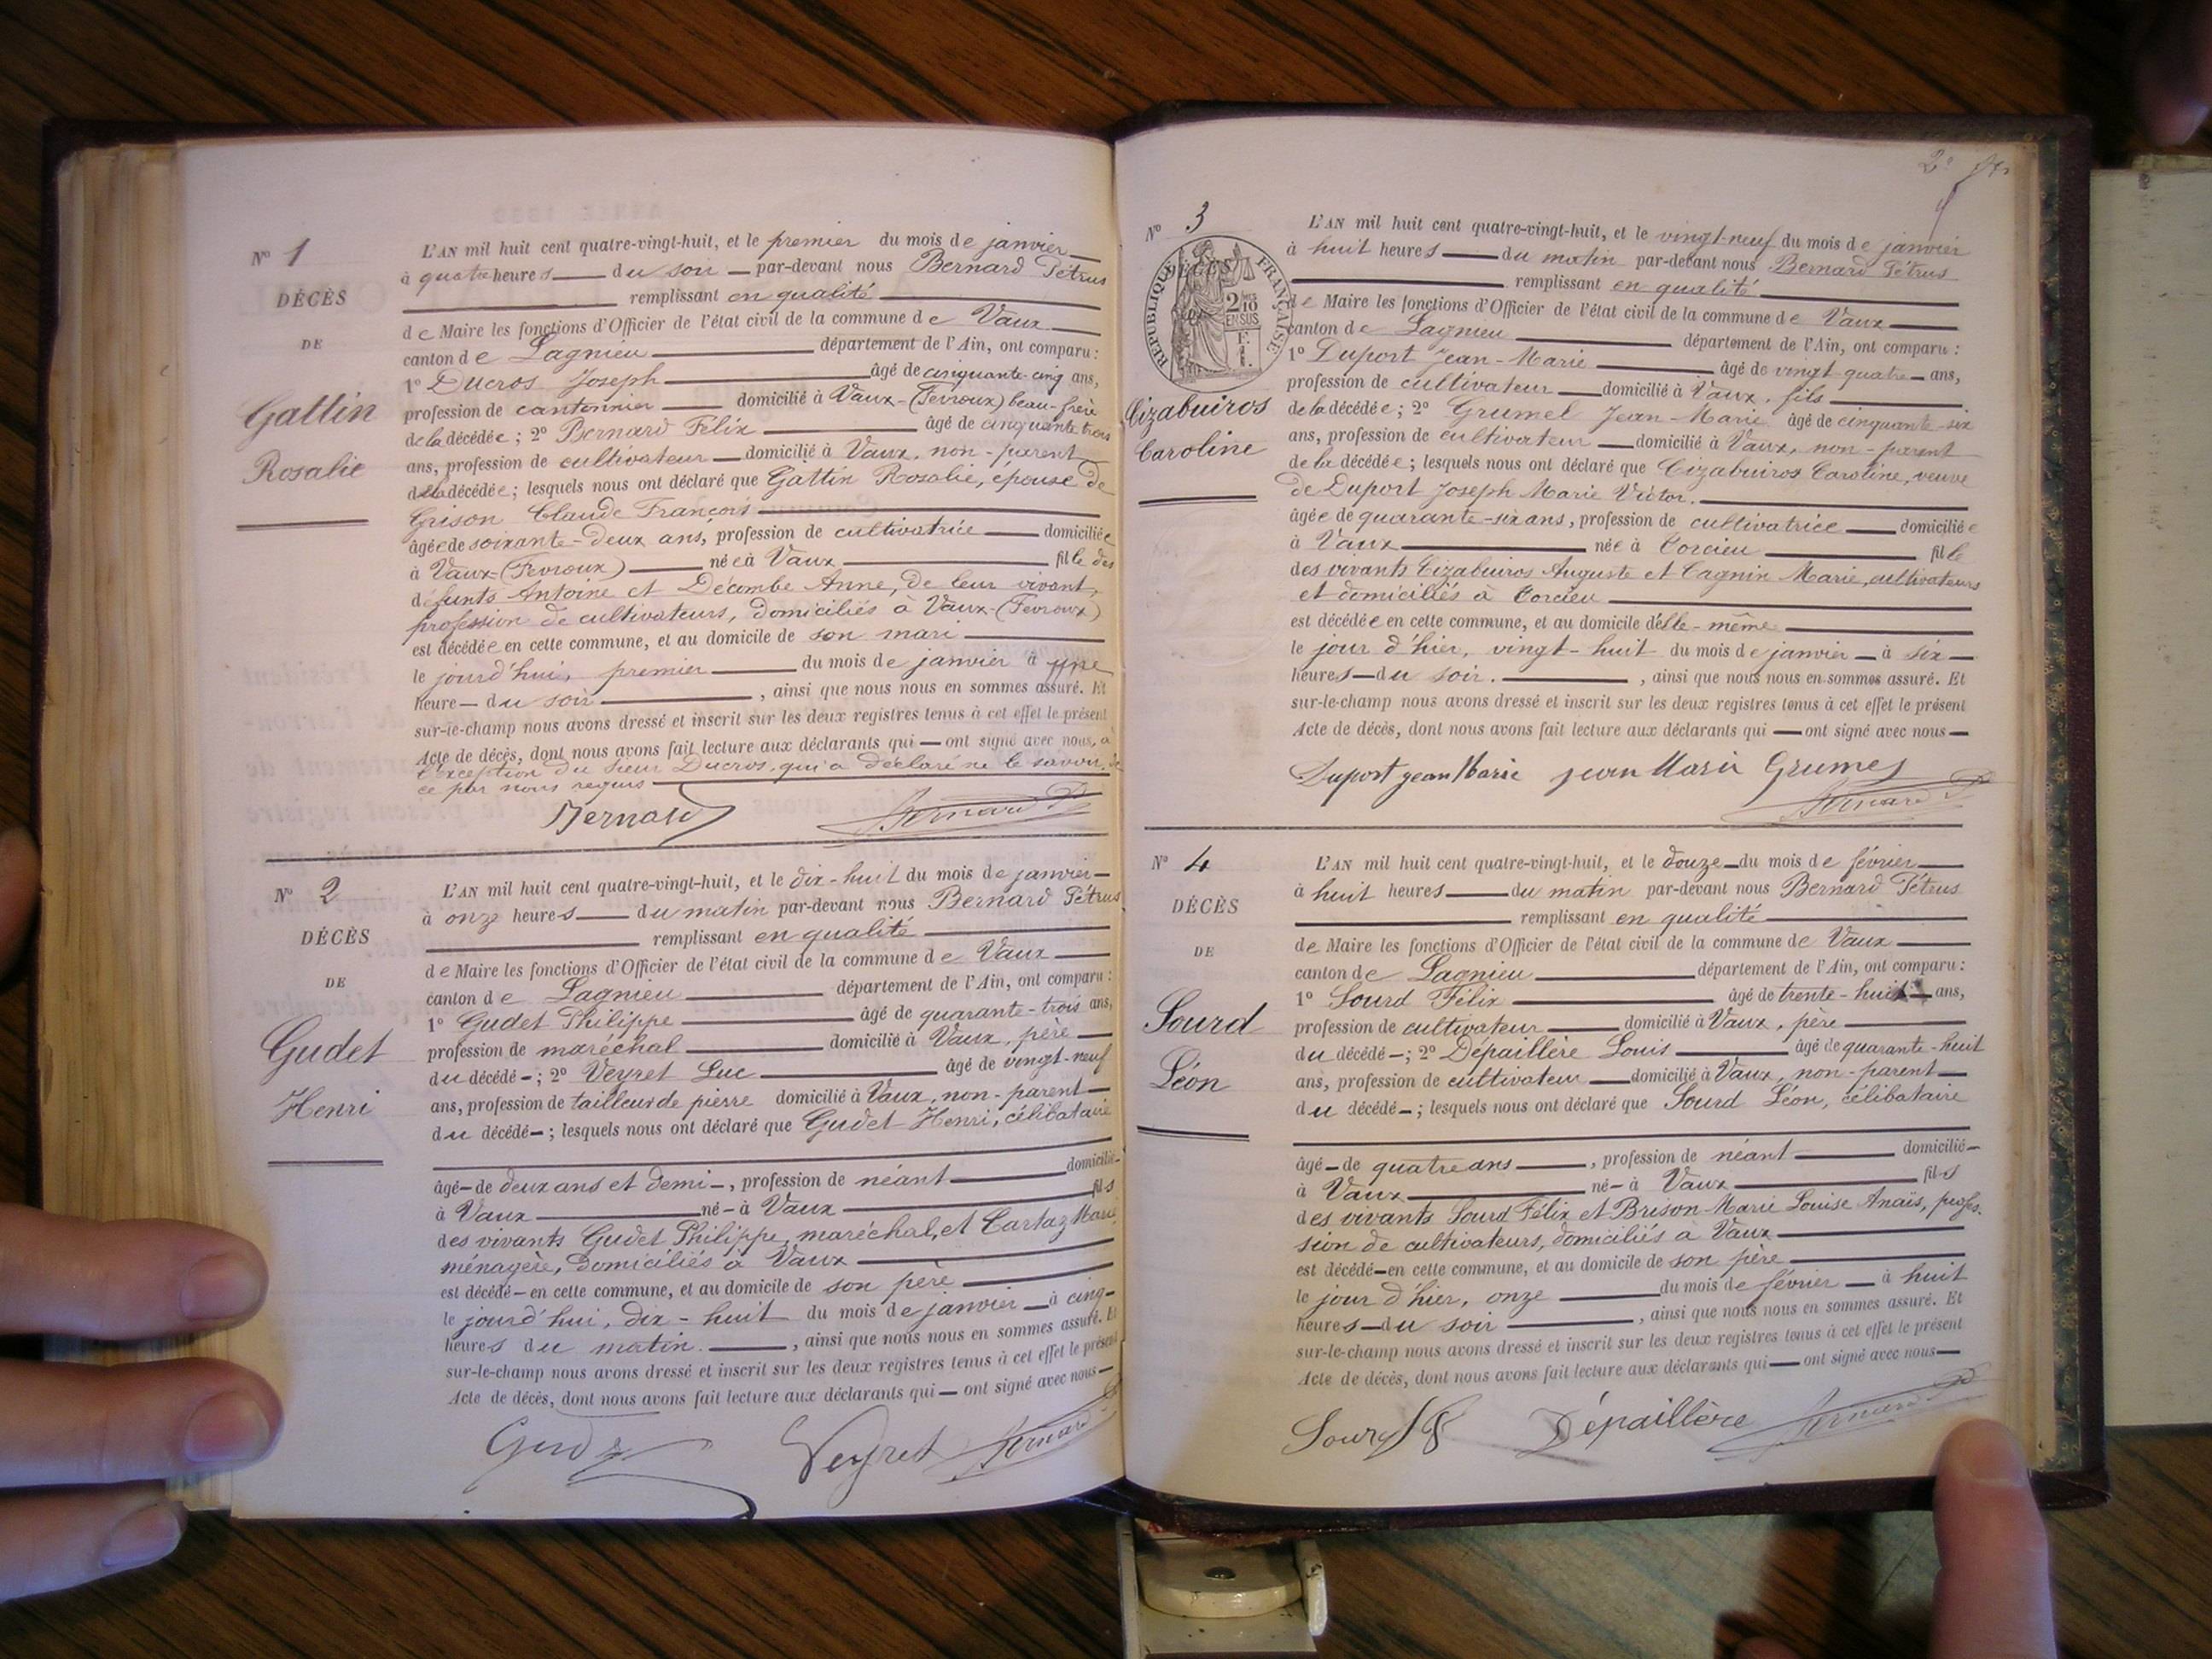 N° 1
DÉCÈS
DE
Gattin
Rosalie
L'AN mil huit cent quatre-vingt-huit, et le premier du mois de janvier
à quatre heures du soir par-devant nous Bernard Pétrus
remplissant en qualité
de Maire les fonctions d'Officier de l'état civil de la commune de Vaux
canton de Lagnieu département de l'Ain, ont comparu :
1° Ducros Joseph âgé de cinquante-cinq ans,
profession de cantonnier domicilié à Vaux-(Fevroux) beau-frère
de la décédée ; 2° Bernard Félix âgé de cinquante trois
ans, profession de cultivateur domicilié à Vaux, non-parent
de la décédée ; lesquels nous ont déclaré que Gattin Rosalie, épouse de
Grison Claude François
âgée de soixante-deux ans, profession de cultivatrice domiciliée
à Vaux-(Fevroux) née à Vaux fille des
défunts Antoine et Décombe Anne, de leur vivant,
profession de cultivateurs, domiciliés à Vaux-(Fevroux)
est décédée en cette commune, et au domicile de son mari
le jourd'hui, premier du mois de janvier à une
heure du soir , ainsi que nous nous en sommes assuré. Et
sur-le-champ nous avons dressé et inscrit sur les deux registres tenus à cet effet le présent
Acte de décès, dont nous avons fait lecture aux déclarants qui ont signé avec nous, à
l'exception du sieur Ducros, qui a déclaré ne le savoir, de
ce par nous requis
Bernard Bernard P
N° 2
DÉCÈS
DE
Gudet
Henri
L'AN mil huit cent quatre-vingt-huit, et le dix-huit du mois de janvier
à onze heures du matin par-devant nous Bernard Pétrus
remplissant en qualité
de Maire les fonctions d'Officier de l'état civil de la commune de Vaux
canton de Lagnieu département de l'Ain, ont comparu :
1° Gudet Philippe âgé de quarante-trois ans,
profession de maréchal domicilié à Vaux, père
du décédé ; 2° Veyret Luc âgé de vingt-neuf
ans, profession de tailleur de pierre domicilié à Vaux, non-parent
du décédé ; lesquels nous ont déclaré que Gudet Henri, célibataire
âgé de deux ans et demi, profession de néant domicilié
à Vaux né à Vaux fils
des vivants Gudet Philippe, maréchal, et Cartaz Marie
ménagère, domiciliés à Vaux
est décédé en cette commune, et au domicile de son père
le jourd'hui, dix-huit du mois de janvier à cinq
heures du matin. , ainsi que nous nous en sommes assuré. Et
sur-le-champ nous avons dressé et inscrit sur les deux registres tenus à cet effet le présent
Acte de décès, dont nous avons fait lecture aux déclarants qui ont signé avec nous
Gudet Veyret Bernard P
2e
N° 3
DÉCÈS
RÉPUBLIQUE FRANÇAISE
2/10 EN SUS
Cizabuiros
Caroline
L'AN mil huit cent quatre-vingt-huit, et le vingt-neuf du mois de janvier
à huit heures du matin par-devant nous Bernard Pétrus
remplissant en qualité
de Maire les fonctions d'Officier de l'état civil de la commune de Vaux
canton de Lagnieu département de l'Ain, ont comparu :
1° Duport Jean-Marie âgé de vingt quatre ans,
profession de cultivateur domicilié à Vaux, fils
de la décédée ; 2° Grumel Jean-Marie âgé de cinquante-six
ans, profession de cultivateur domicilié à Vaux, non-parent
de la décédée ; lesquels nous ont déclaré que Cizabuiros Caroline, veuve
de Duport Joseph Marie Victor.
âgée de quarante-six ans, profession de cultivatrice domiciliée
à Vaux née à Torcieu fille
des vivants Cizabuiros Auguste et Cagnin Marie, cultivateurs
et domiciliés à Torcieu
est décédée en cette commune, et au domicile d'elle-même
le jour d'hier, vingt-huit du mois de janvier à six
heures du soir. , ainsi que nous nous en sommes assuré. Et
sur-le-champ nous avons dressé et inscrit sur les deux registres tenus à cet effet le présent
Acte de décès, dont nous avons fait lecture aux déclarants qui ont signé avec nous
Duport jean Marie jean Marie Grumel
Bernard P
N° 4
DÉCÈS
DE
Sourd
Léon
L'AN mil huit cent quatre-vingt-huit, et le douze du mois de février
à huit heures du matin par-devant nous Bernard Pétrus
remplissant en qualité
de Maire les fonctions d'Officier de l'état civil de la commune de Vaux
canton de Lagnieu département de l'Ain, ont comparu :
1° Sourd Félix âgé de trente-huit ans,
profession de cultivateur domicilié à Vaux, père
du décédé ; 2° Dépaillère Louis âgé de quarante-huit
ans, profession de cultivateur domicilié à Vaux, non-parent
du décédé ; lesquels nous ont déclaré que Sourd Léon, célibataire
âgé de quatre ans , profession de néant domicilié
à Vaux né à Vaux fils
des vivants Sourd Félix et Brison Marie Louise Anaïs, profes-
sion de cultivateurs, domiciliés à Vaux
est décédé en cette commune, et au domicile de son père
le jour d'hier, onze du mois de février à huit
heures du soir , ainsi que nous nous en sommes assuré. Et
sur-le-champ nous avons dressé et inscrit sur les deux registres tenus à cet effet le présent
Acte de décès, dont nous avons fait lecture aux déclarants qui ont signé avec nous
Sourd Dépaillère Bernard P